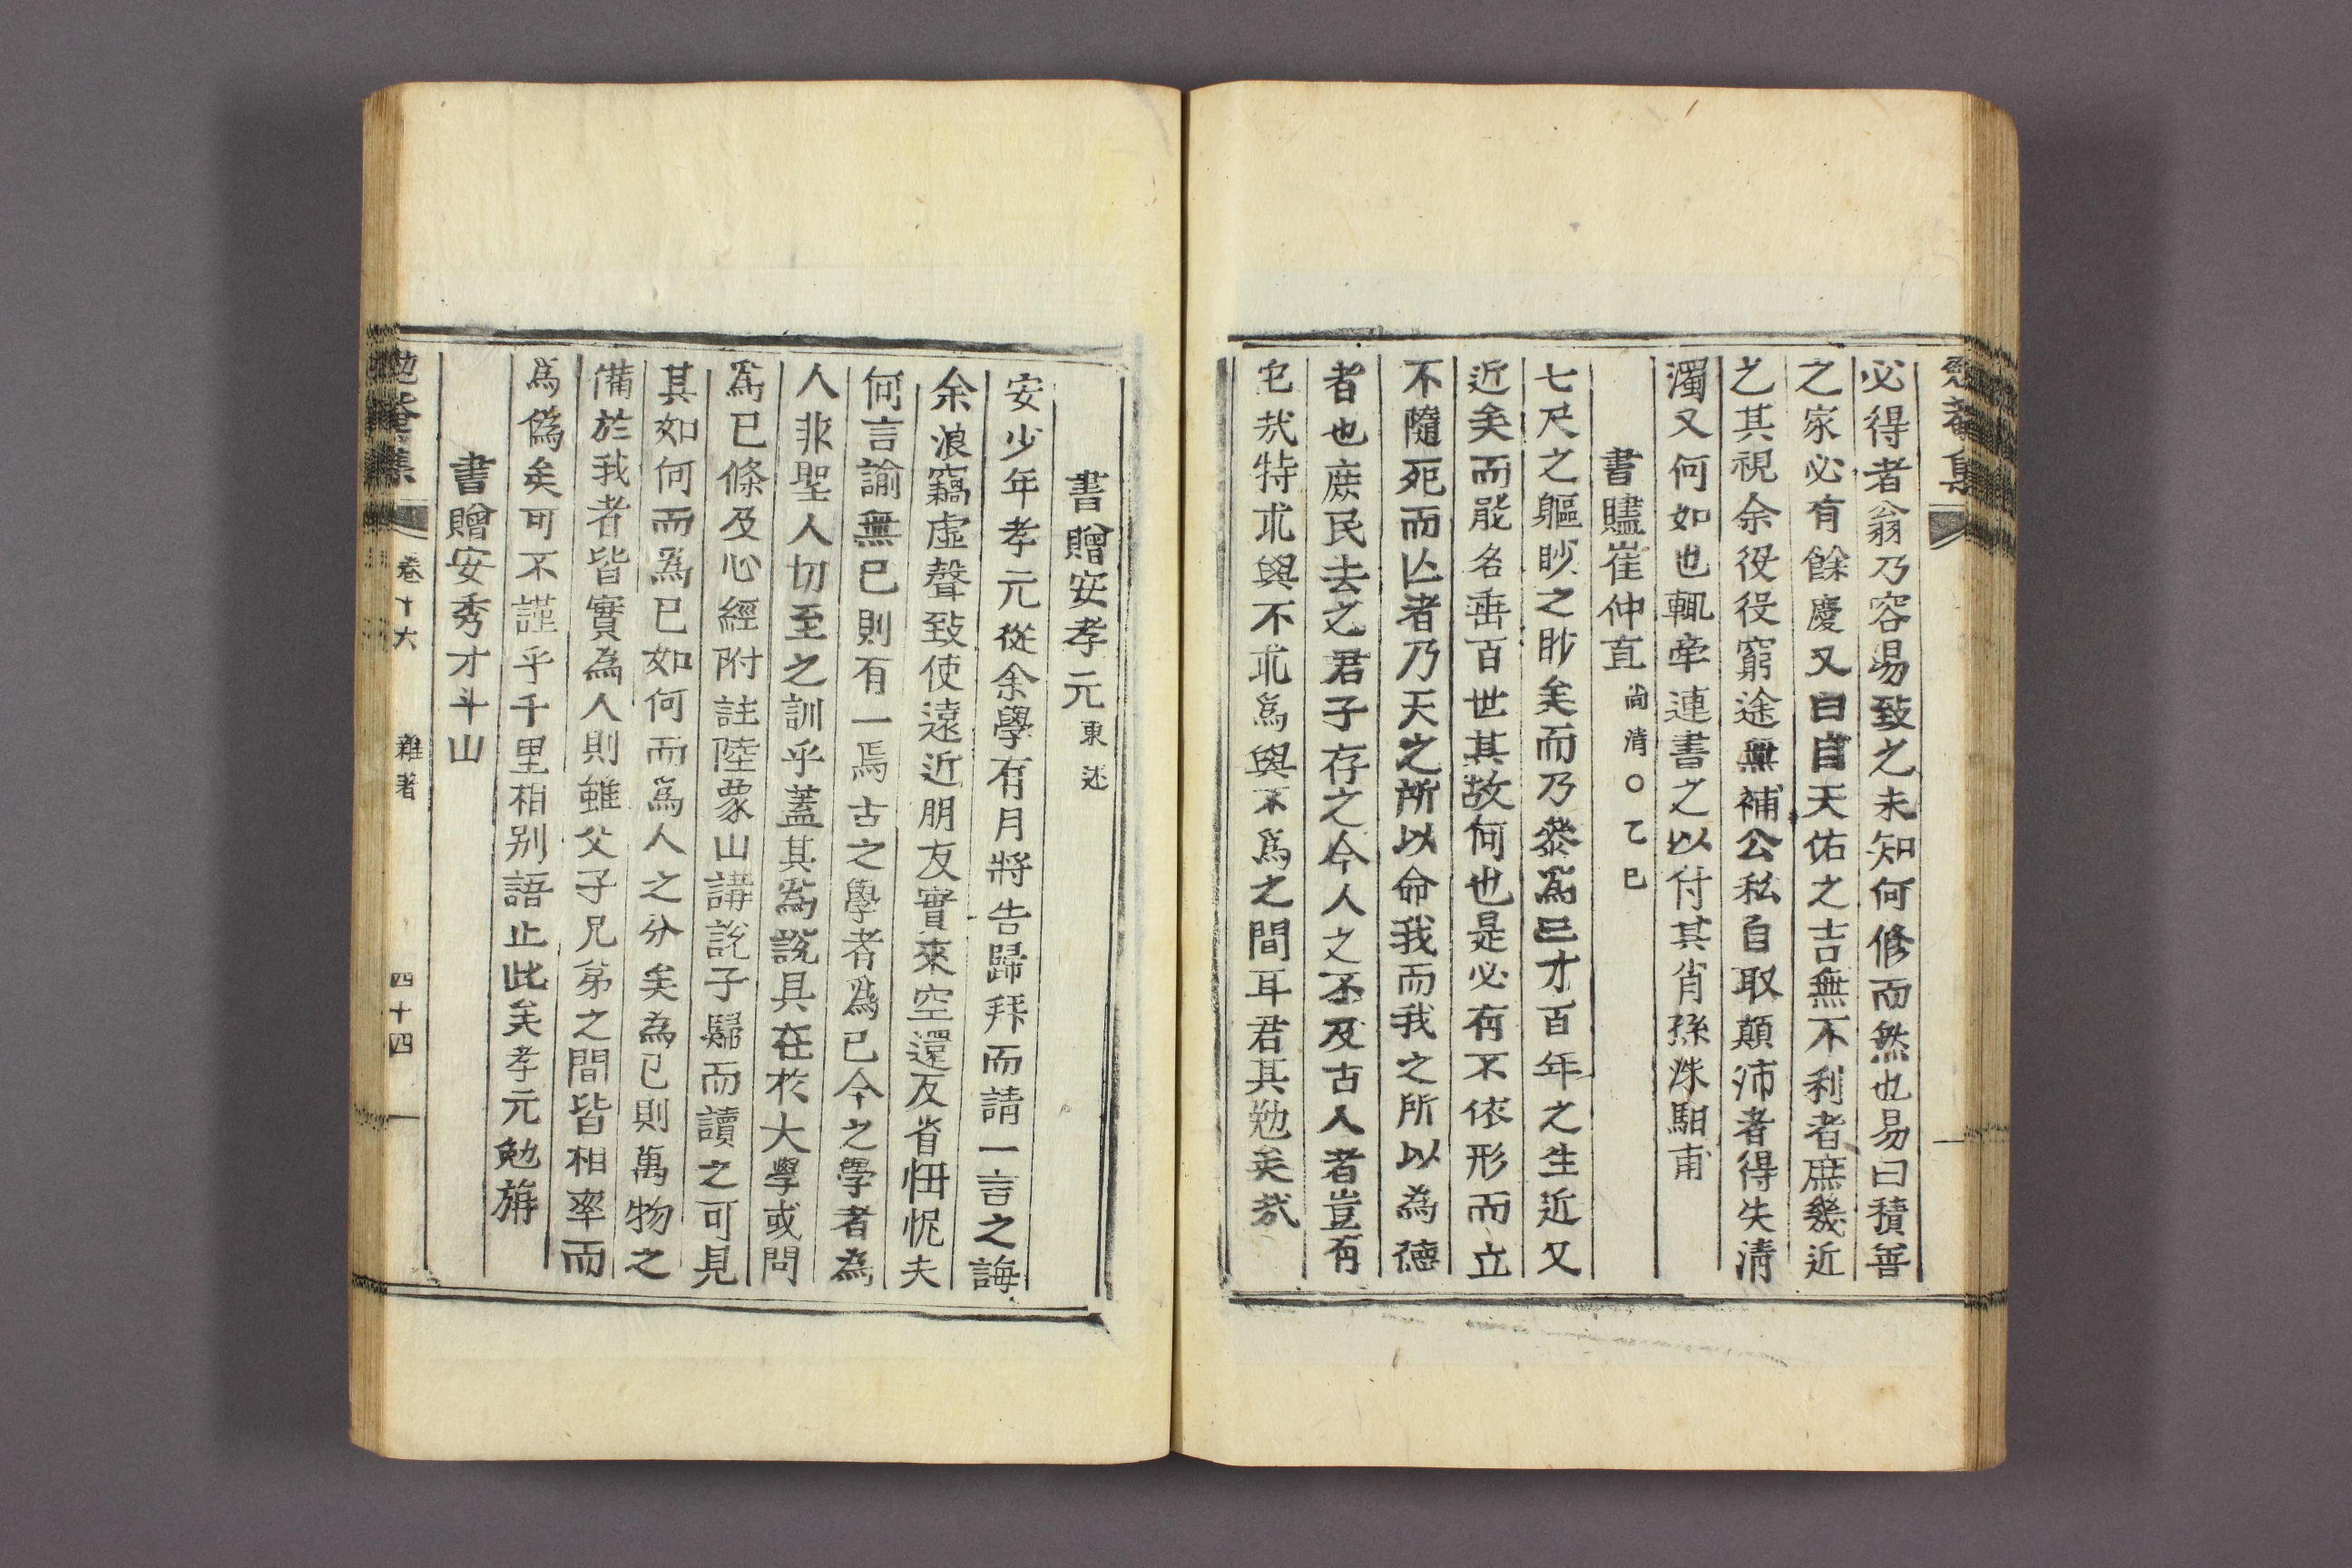 勉菴集
必得者翁乃容易致之未知何修而然也易曰積善
之家必有餘慶又曰自天佑之吉無不利者庶幾近
之其視余役役窮途無補公私自取顛沛者得失淸
濁又何如也輒牽連書之以付其肖孫洙馹甫
書贐崔仲直 尙淸○乙巳
七尺之軀眇之眇矣而乃叅爲三才百年之生近又
近矣而能名垂百世其故何也是必有不依形而立
不隨死而亾者乃天之所以命我而我之所以為德
者也庶民去之君子存之今人之不及古人者豈有
它哉特求與不求爲與不爲之間耳君其勉矣哉
書贈安孝元 東述
安少年孝元從余學有月將告歸拜而請一言之誨
余浪竊虛聲致使遠近朋友實來空還反省忸怩夫
何言諭無已則有一焉古之學者為己今之學者為
人非聖人切至之訓乎蓋其爲說具在於大學或問
爲己條及心經附註陸象山講說子歸而讀之可見
其如何而爲己如何而爲人之分矣為己則萬物之
備於我者皆實為人則雖父子兄弟之間皆相率而
爲僞矣可不謹乎千里相別語止此矣孝元勉旃
書贈安秀才斗山
勉菴集 卷十六 雜著 四十四